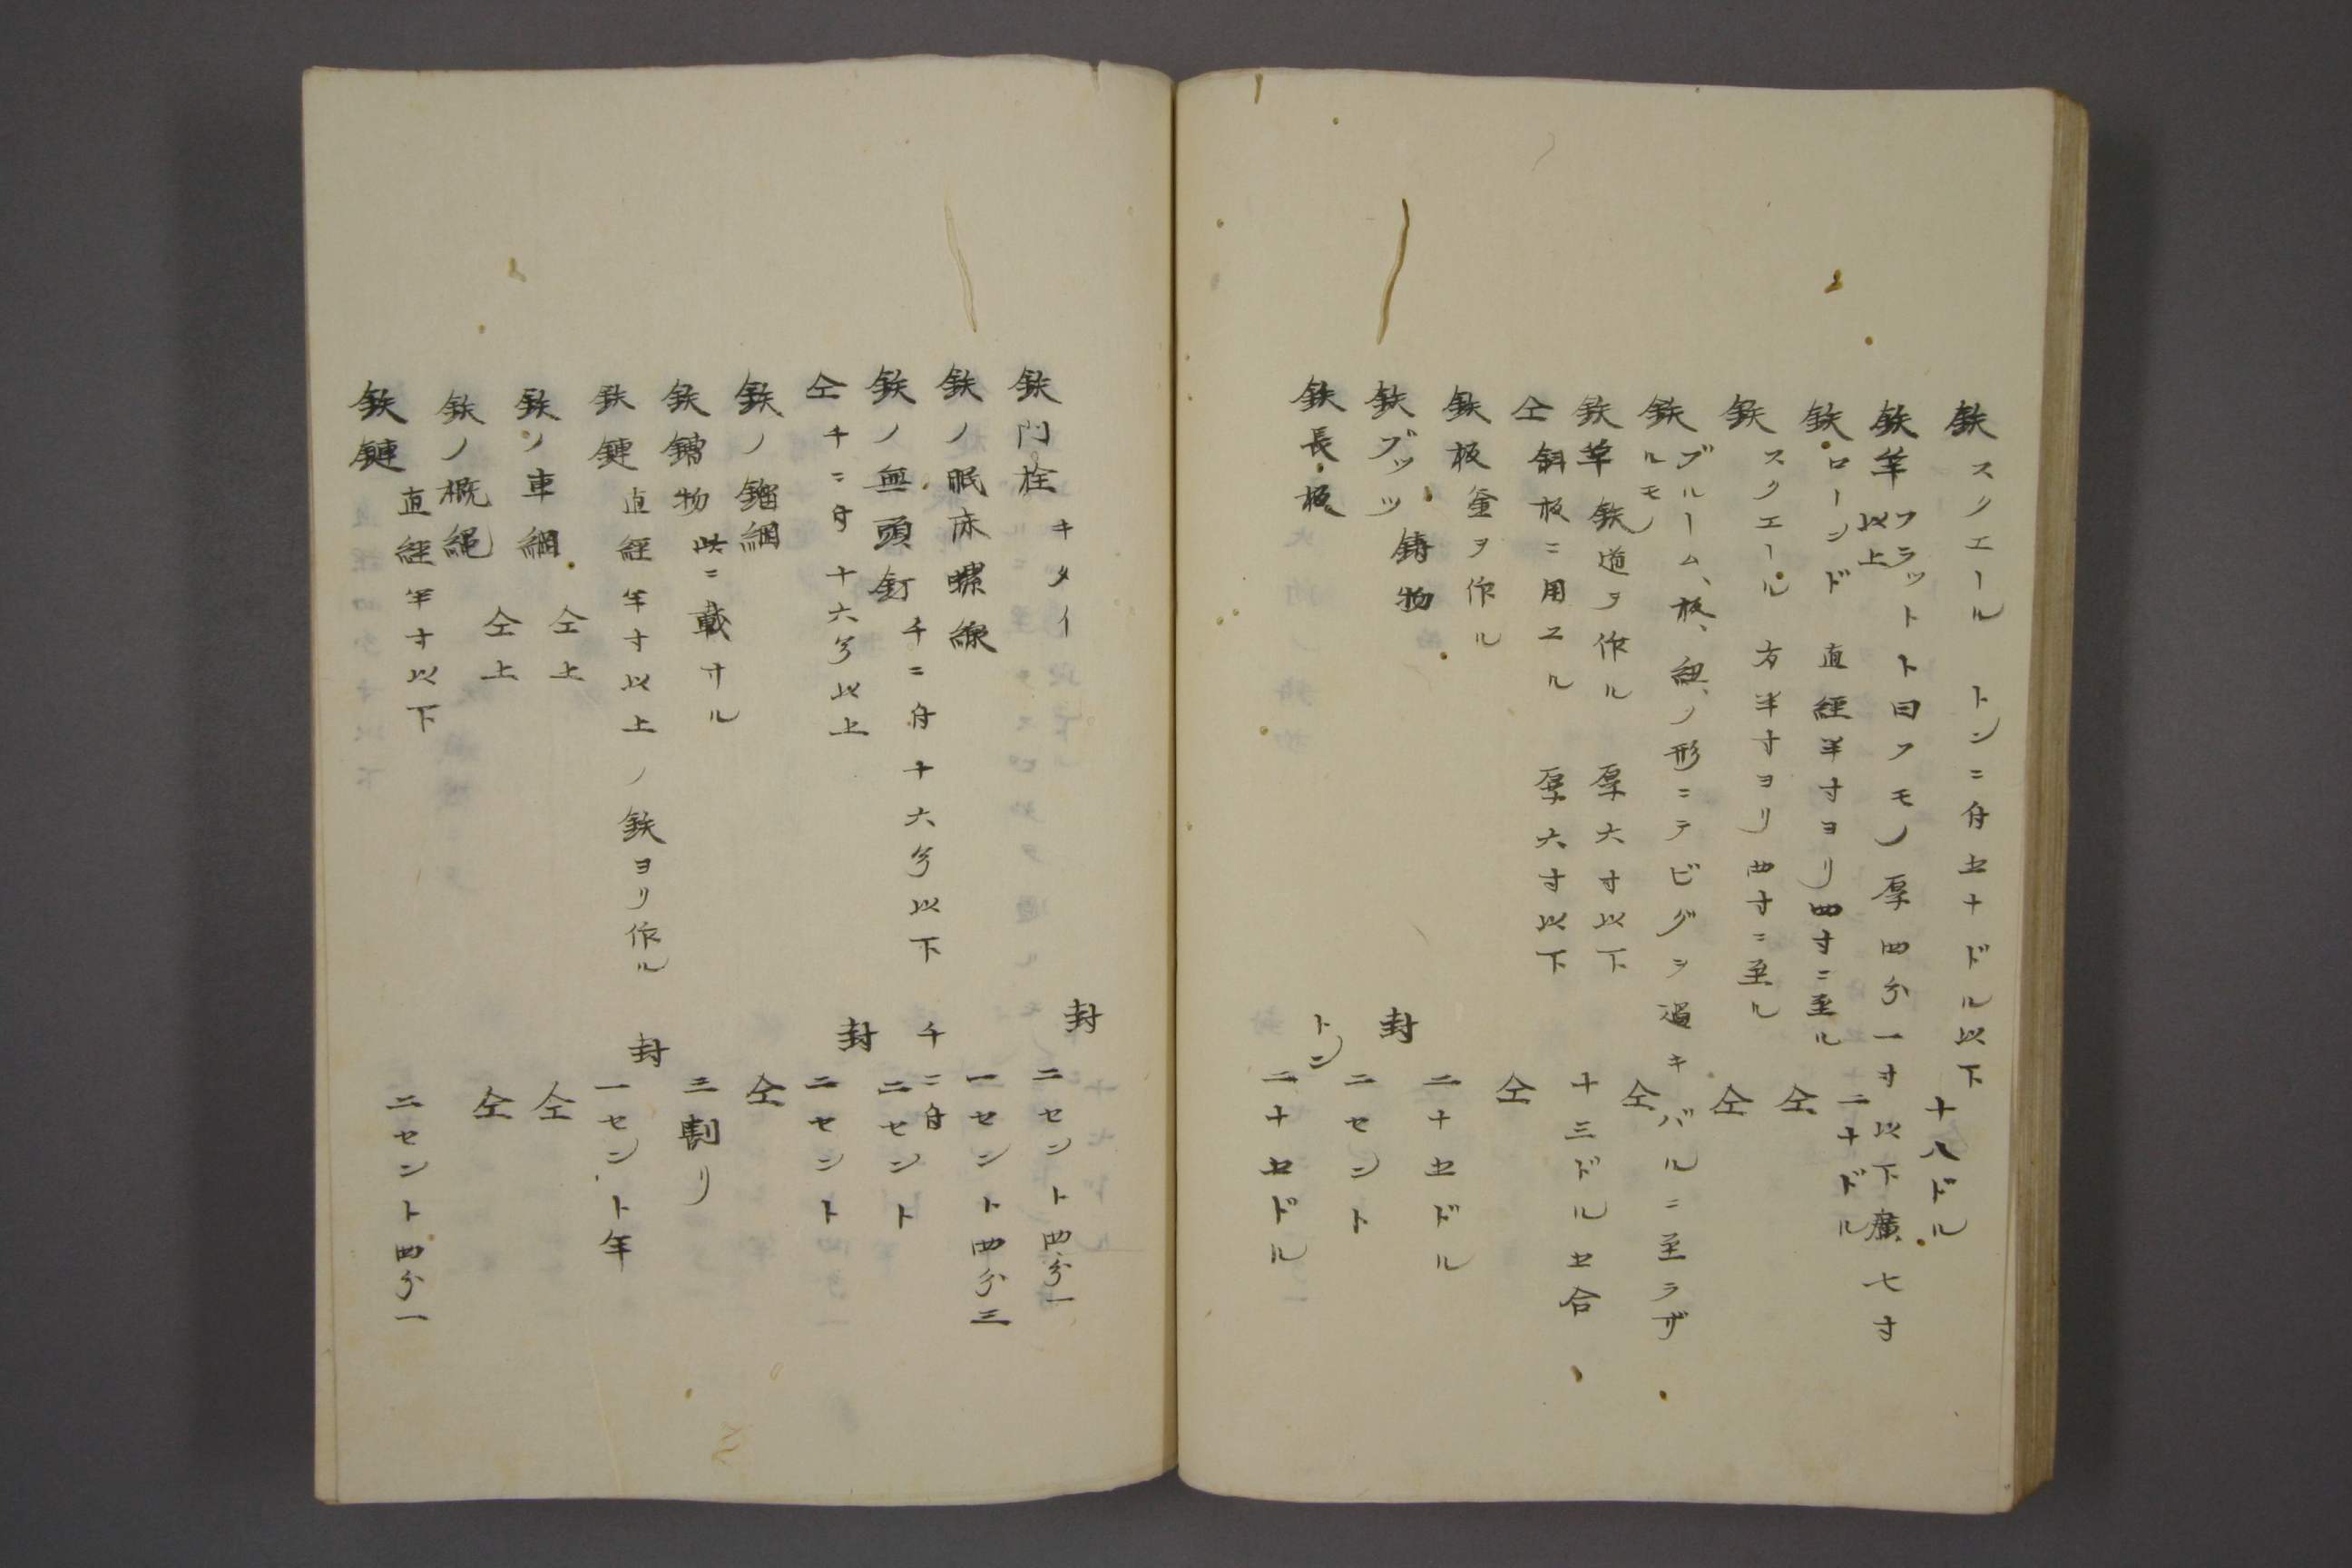 鉄スクエール トンニ付五十ドル以下 十八ドル
鉄竿フラットト曰フモノ厚四分一寸以下廣七寸
以上 二十ドル
鉄ローンド 直經半寸ヨリ四寸ニ至ル 仝
鉄スクエール 方半寸ヨリ四寸ニ至ル 仝
鉄ブルーム、板、組、ノ形ニテビグヲ過キバルニ至ラザ
ルモノ 仝
鉄 鉄道ヲ作ル 厚六寸以下 十三ドル五合
仝斜板ニ用エル 厚六寸以下 仝
鉄板釜ヲ作ル 二十五ドル
鉄ブッツ鋳物 封二セント
鉄長板 トンニ二十五ドル
鉄門栓キタイ 封二セント四分一
鉄ノ眠床螺線 一セント四分三
鉄ノ無頭釘千ニ付十六分以下 千ニ付二セント
仝千ニ付十六分以上 封二セント
鉄ノ錨綱 仝
鉄鑄物此ニ載ナル 三割リ
鉄鏈直經半寸以上ノ鉄ヨリ作ル 封一セント半
鉄ノ車綱 仝上 仝
鉄ノ概縄 仝上 仝
鉄鏈直經半寸以下 二セント四分一